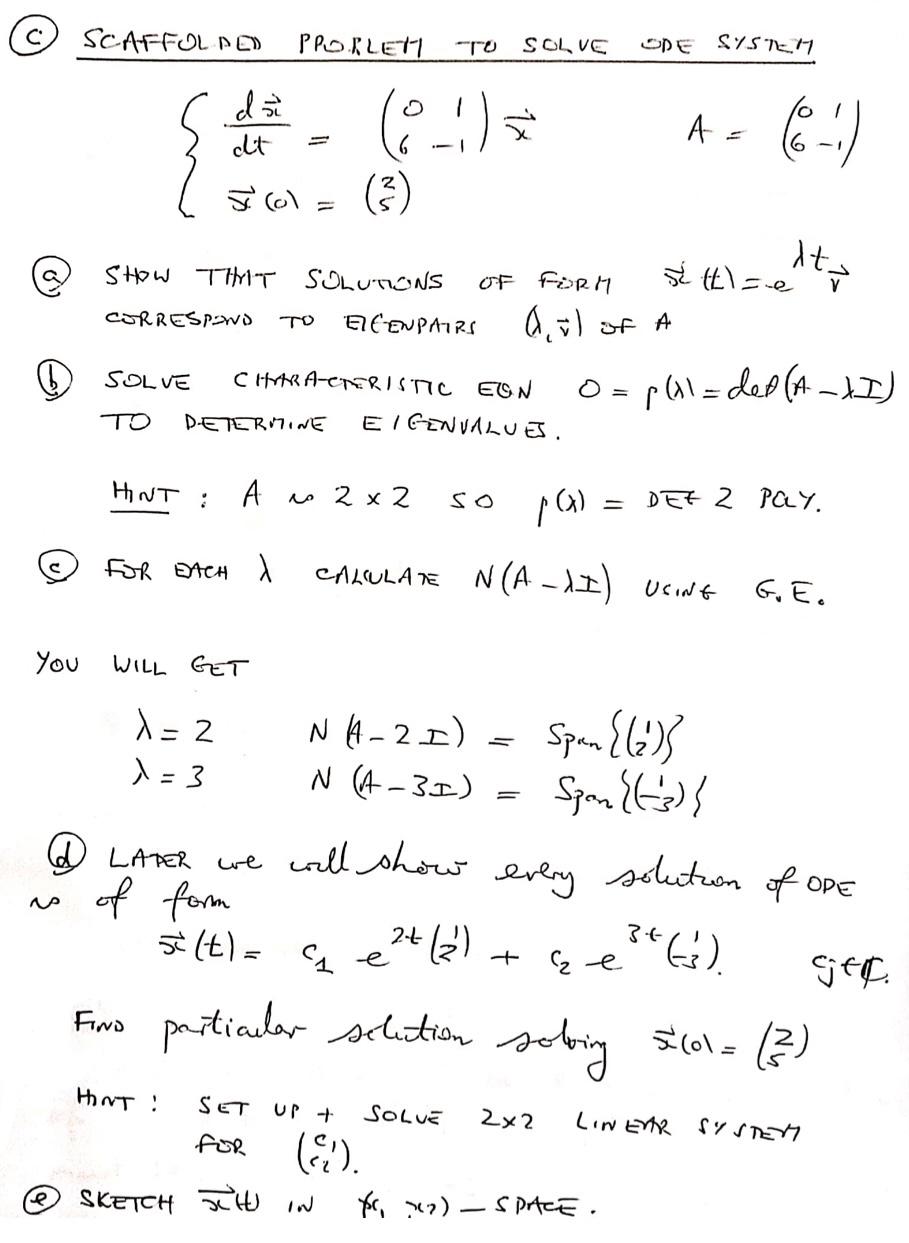 (c) SCAFFOLDED PROBLEM TO SOLVE ODE SYSTEM
{ dx⃗/dt = (0 1; 6 -1) x⃗   A = (0 1; 6 -1)
x⃗(0) = (2; 5)
(a) SHOW THAT SOLUTIONS OF FORM x⃗(t) = e^{λt} v⃗
CORRESPOND TO EIGENPAIRS (λ, v⃗) OF A
(b) SOLVE CHARACTERISTIC EQN 0 = p(λ) = det(A - λI)
TO DETERMINE EIGENVALUES.
HINT : A is 2 x 2 SO p(λ) = DEG 2 POLY.
(c) FOR EACH λ CALCULATE N(A - λI) USING G.E.
YOU WILL GET
λ = 2   N(A - 2I) = Span{(1; 2)}
λ = 3   N(A - 3I) = Span{(1; -3)}
(d) LATER we will show every solution of ODE
is of form
x⃗(t) = c₁ e^{2t} (1; 2) + c₂ e^{3t} (1; -3).   cⱼ ∈ ℂ.
FIND particular solution solving x⃗(0) = (2; 5)
HINT : SET UP + SOLVE 2x2 LINEAR SYSTEM
FOR (c₁; c₂).
(e) SKETCH x⃗(t) IN (x₁, x₂) - SPACE.